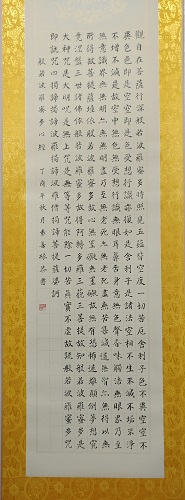 觀自在菩薩行深般若波羅蜜多時照見五蘊皆空度一切苦厄舍利子色不異空空不
異色色即是空空即是色受想行識亦復如是舍利子是諸法空相不生不滅不垢不淨
不增不減是故空中無色無受想行識無眼耳鼻舌身意無色聲香味觸法無眼界乃至
無意識界無無明亦無無明盡乃至無老死亦無老死盡無苦集滅道無智亦無得以無
所得故菩提薩埵依般若波羅蜜多故心無罣礙無罣礙故無有恐怖遠離顛倒夢想究
竟涅槃三世諸佛依般若波羅蜜多故得阿耨多羅三藐三菩提故知般若波羅蜜多是
大神咒是大明咒是無上咒是無等等咒能除一切苦真實不虛故說般若波羅蜜多咒
即說咒曰揭諦揭諦波羅揭諦波羅僧揭諦菩提薩婆訶
般若波羅蜜多心經 丁酉年秋月 書